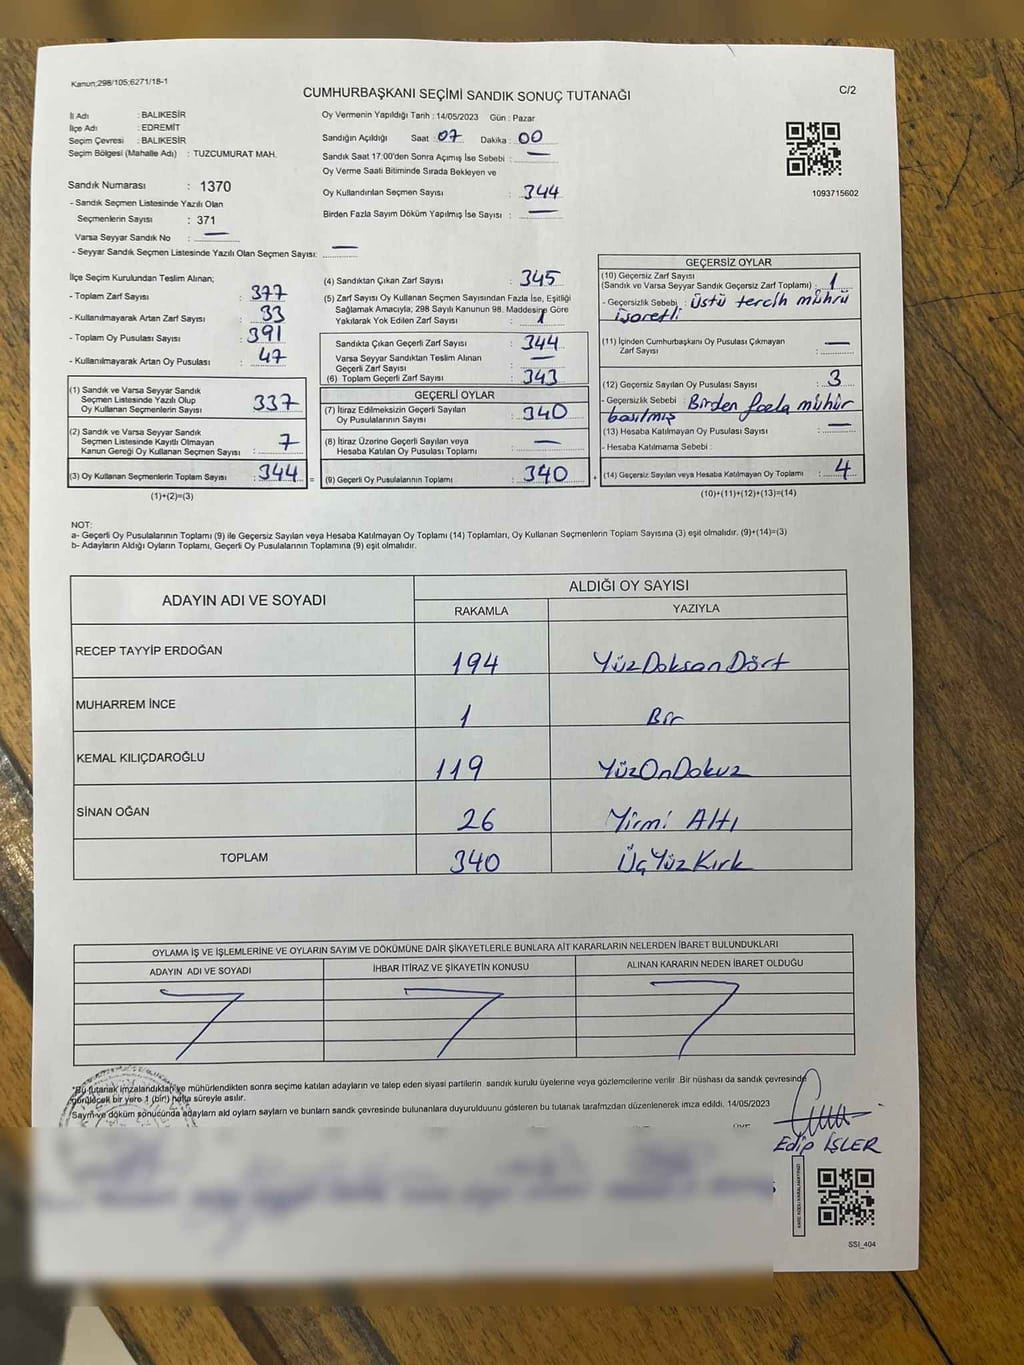 Kanun;298/105;6271/18-1
C/2
CUMHURBAŞKANI SEÇİMİ SANDIK SONUÇ TUTANAĞI
İl Adı : BALIKESİR
İlçe Adı : EDREMİT
Seçim Çevresi : BALIKESİR
Seçim Bölgesi (Mahalle Adı) : TUZCUMURAT MAH.
Sandık Numarası : 1370
- Sandık Seçmen Listesinde Yazılı Olan
Seçmenlerin Sayısı : 371
Varsa Seyyar Sandık No : —
- Seyyar Sandık Seçmen Listesinde Yazılı Olan Seçmen Sayısı: —
Oy Vermenin Yapıldığı Tarih : 14/05/2023 Gün : Pazar
Sandığın Açıldığı Saat : 07 Dakika : 00
Sandık Saat 17:00'den Sonra Açımış İse Sebebi : —
Oy Verme Saati Bitiminde Sırada Bekleyen ve
Oy Kullandırılan Seçmen Sayısı : 344
Birden Fazla Sayım Döküm Yapılmış İse Sayısı : —
1093715602
İlçe Seçim Kurulundan Teslim Alınan;
- Toplam Zarf Sayısı : 377
- Kullanılmayarak Artan Zarf Sayısı : 33
- Toplam Oy Pusulası Sayısı : 391
- Kullanılmayarak Artan Oy Pusulası : 47
(1) Sandık ve Varsa Seyyar Sandık
Seçmen Listesinde Yazılı Olup
Oy Kullanan Seçmenlerin Sayısı : 337
(2) Sandık ve Varsa Seyyar Sandık
Seçmen Listesinde Kayıtlı Olmayan
Kanun Gereği Oy Kullanan Seçmen Sayısı : 7
(3) Oy Kullanan Seçmenlerin Toplam Sayısı : 344
(1)+(2)=(3)
(4) Sandıktan Çıkan Zarf Sayısı : 345
(5) Zarf Sayısı Oy Kullanan Seçmen Sayısından Fazla İse, Eşitliği
Sağlamak Amacıyla; 298 Sayılı Kanunun 98. Maddesine Göre
Yakılarak Yok Edilen Zarf Sayısı : 1
Sandıkta Çıkan Geçerli Zarf Sayısı : 344
Varsa Seyyar Sandıktan Teslim Alınan
Geçerli Zarf Sayısı : —
(6) Toplam Geçerli Zarf Sayısı : 343
GEÇERLİ OYLAR
(7) İtiraz Edilmeksizin Geçerli Sayılan
Oy Pusulalarının Sayısı : 340
(8) İtiraz Üzerine Geçerli Sayılan veya
Hesaba Katılan Oy Pusulası Toplamı : —
= (9) Geçerli Oy Pusulalarının Toplamı : 340
GEÇERSİZ OYLAR
(10) Geçersiz Zarf Sayısı
(Sandık ve Varsa Seyyar Sandık Geçersiz Zarf Toplamı) : 1
- Geçersizlik Sebebi : üstü tercih mührü
işaretli
(11) İçinden Cumhurbaşkanı Oy Pusulası Çıkmayan
Zarf Sayısı : —
(12) Geçersiz Sayılan Oy Pusulası Sayısı : 3
- Geçersizlik Sebebi : Birden fazla mühür
basılmış
(13) Hesaba Katılmayan Oy Pusulası Sayısı : —
- Hesaba Katılmama Sebebi :
+ (14) Geçersiz Sayılan veya Hesaba Katılmayan Oy Toplamı : 4
(10)+(11)+(12)+(13)=(14)
NOT:
a- Geçerli Oy Pusulalarının Toplamı (9) ile Geçersiz Sayılan veya Hesaba Katılmayan Oy Toplamı (14) Toplamları, Oy Kullanan Seçmenlerin Toplam Sayısına (3) eşit olmalıdır. (9)+(14)=(3)
b- Adayların Aldığı Oyların Toplamı, Geçerli Oy Pusulalarının Toplamına (9) eşit olmalıdır.
ADAYIN ADI VE SOYADI
ALDIĞI OY SAYISI
RAKAMLA YAZIYLA
RECEP TAYYİP ERDOĞAN 194 YüzDoksanDört
MUHARREM İNCE 1 Bir
KEMAL KILIÇDAROĞLU 119 YüzOnDokuz
SİNAN OĞAN 26 Yirmi Altı
TOPLAM 340 ÜçYüzKırk
OYLAMA İŞ VE İŞLEMLERİNE VE OYLARIN SAYIM VE DÖKÜMÜNE DAİR ŞİKAYETLERLE BUNLARA AİT KARARLARIN NELERDEN İBARET BULUNDUKLARI
ADAYIN ADI VE SOYADI İHBAR İTİRAZ VE ŞİKAYETİN KONUSU ALINAN KARARIN NEDEN İBARET OLDUĞU
"Bu tutanak imzalandıktan ve mühürlendikten sonra seçime katılan adayların ve talep eden siyasi partilerin sandık kurulu üyelerine veya gözlemcilerine verilir .Bir nüshası da sandık çevresinde
görülecek bir yere 1 (bir) hafta süreyle asılır.
Sayım ve döküm sonucunda adayların ald oyların sayların ve bunların sandık çevresinde bulunanlara duyurulduunu gösteren bu tutanak tarafmzdan düzenlenerek imza edildi. 14/05/2023
Edip İŞLER
SSI_404